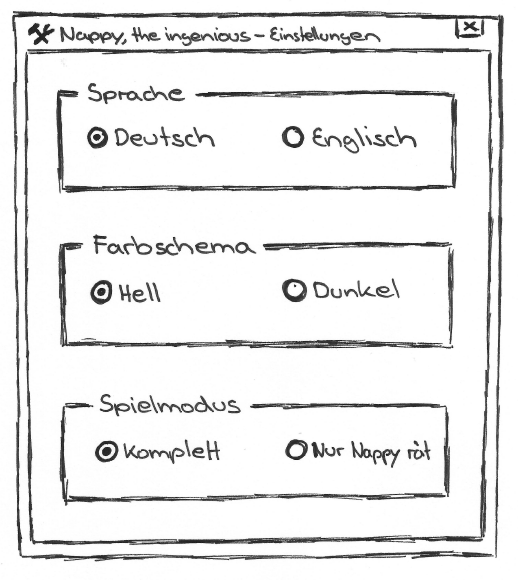 Nappy, the ingenious – Einstellungen
Sprache
Deutsch Englisch
Farbschema
Hell Dunkel
Spielmodus
Komplett Nur Nappy rät